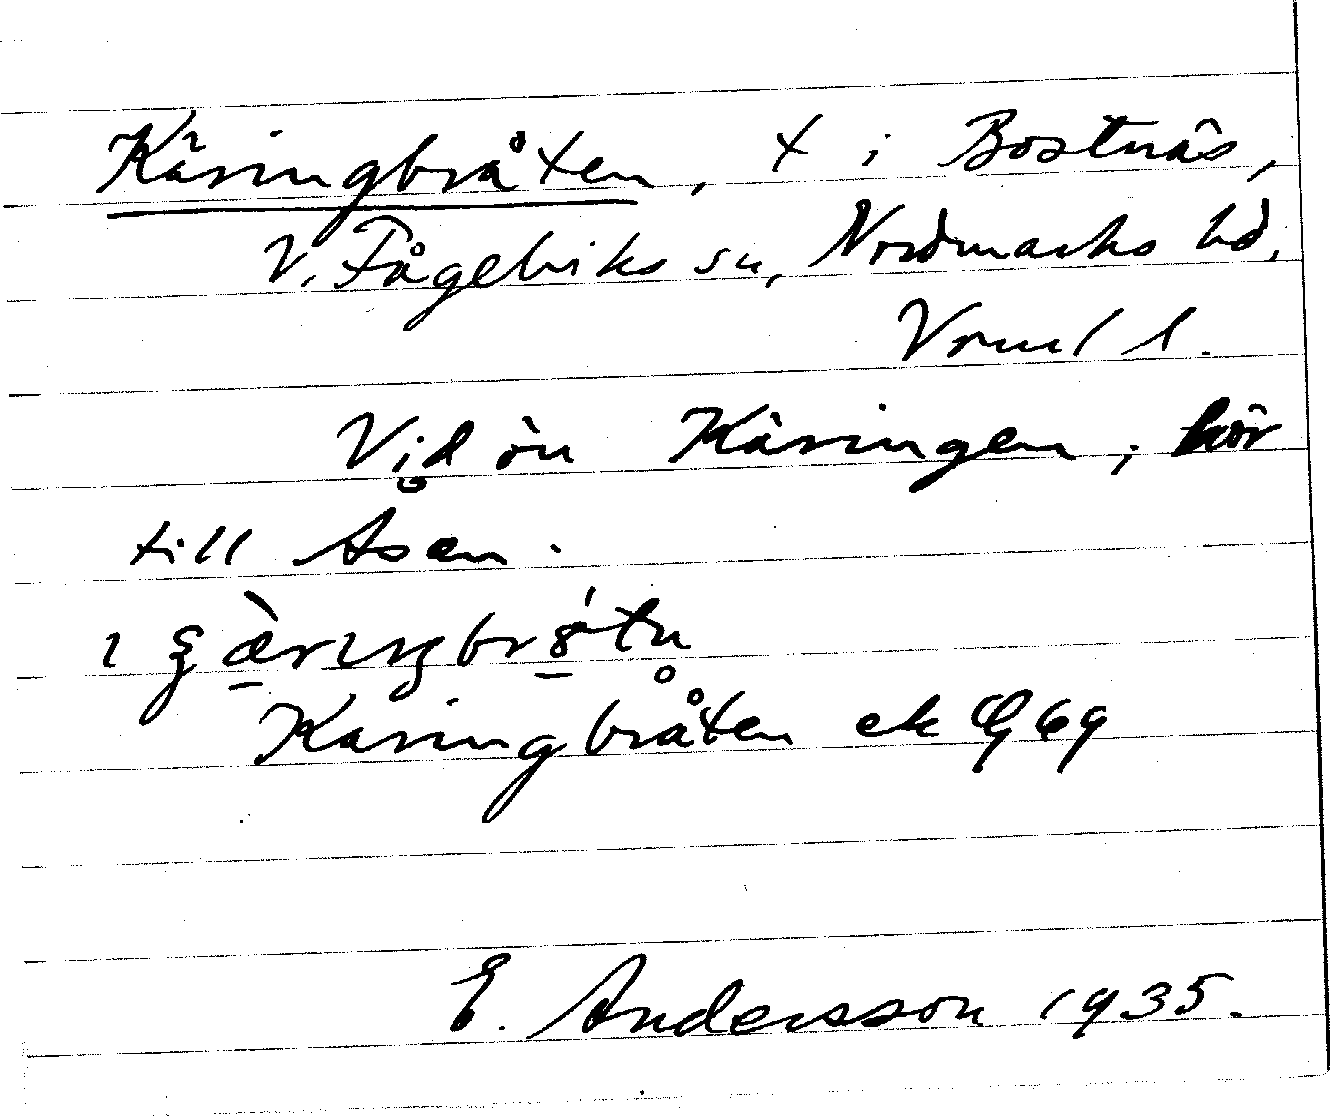 Käringbråten, t i Bostnäs,
V. Fågelviks sn, Nordmarks hd,
Vrml l.
Vid ön Käringen; hör
till Åsen.
Käringbråten ek G 69
E. Andersson 1935.